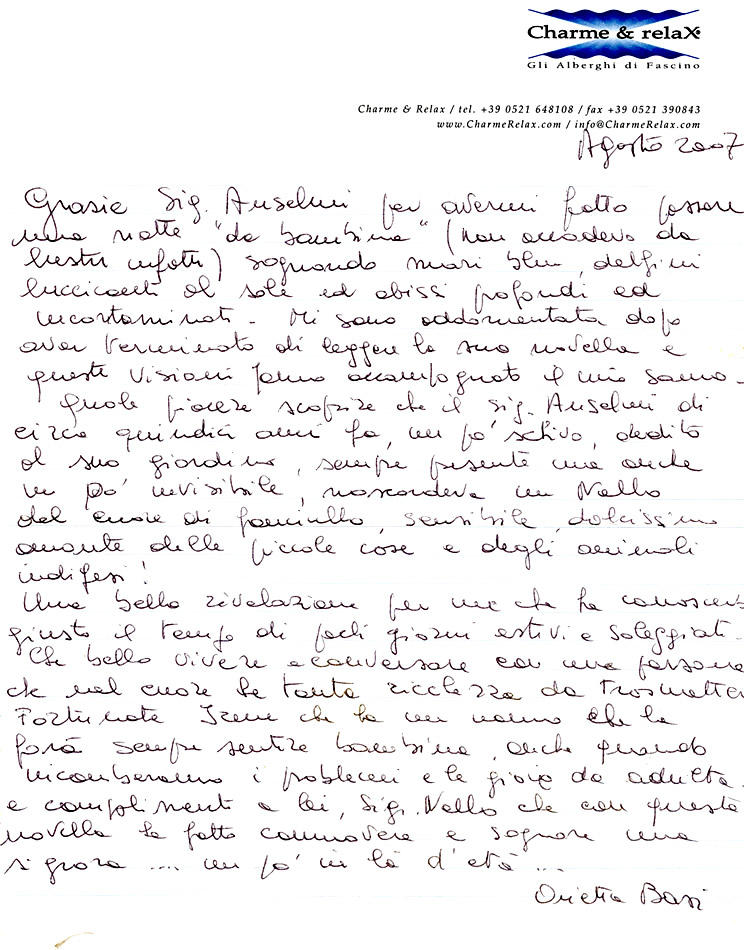 Charme & relaX
Gli Alberghi di Fascino
Charme & Relax / tel. +39 0521 648108 / fax +39 0521 390843
www.CharmeRelax.com / info@CharmeRelax.com
Agosto 2007
Grazie Sig. Anselmi per avermi fatto passare
una notte "da bambina" (non accadeva da
lustri infatti) sognando mari blu, delfini
luccicanti al sole ed abissi profondi ed
incontaminati - Mi sono addormentata dopo
aver terminato di leggere la sua novella e
queste visioni hanno accompagnato il mio sonno -
Quale piacere scoprire che il Sig. Anselmi di
circa quindici anni fa, un po' schivo, dedito
al suo giardino, sempre presente ma anche
un po' invisibile, nascondeva un Nello
dal cuore di fanciullo, sensibile, dolcissimo
amante delle piccole cose e degli animali
indifesi!
Una bella rivelazione per me che l'ha conosciuto
giusto il tempo di pochi giorni estivi e soleggiati -
Che bello vivere e conversare con una persona
che nel cuore ha tanta ricchezza da trasmettere
Fortunata Irene che ha un nonno che la
farà sempre sentire bambina, anche quando
incomberanno i problemi e le gioie da adulta.
e complimenti a lei, Sig. Nello che con questa
novella ha fatto commuovere e sognare una
signora .... un po' in là d'età ...
Orietta